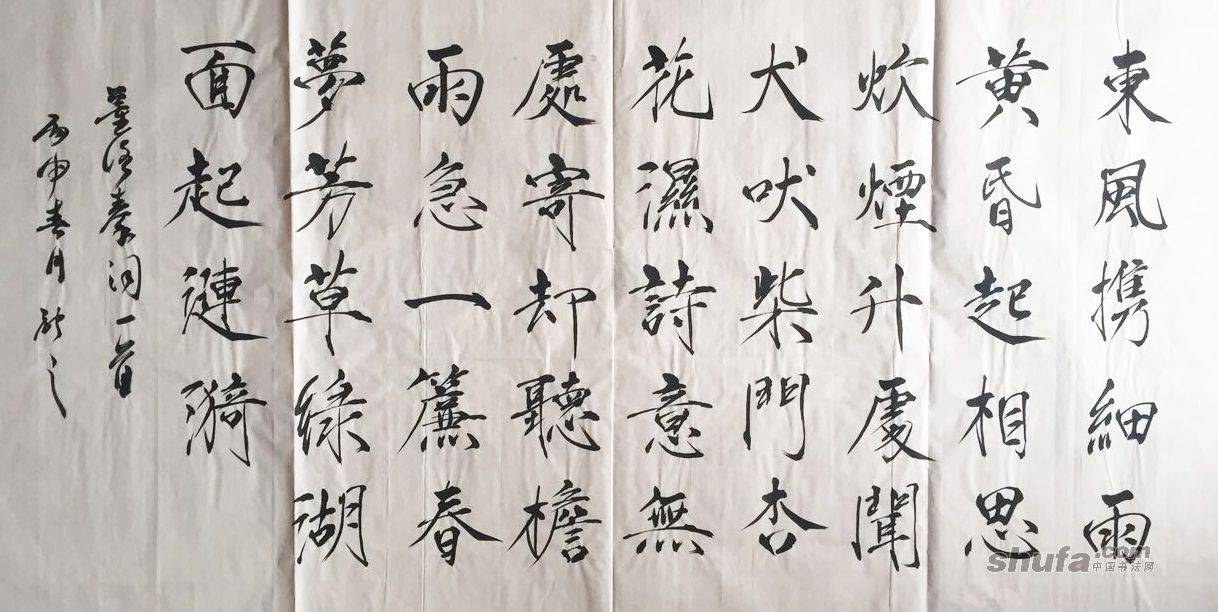 東風携細雨
黄昏起相思
炊煙升處聞
犬吠柴門杏
花濕詩意無
處寄却聽檐
雨急一簾春
夢芳草緑湖
面起漣漪
董 詞一首
丙申春月 之
shufa.com
中国书法网